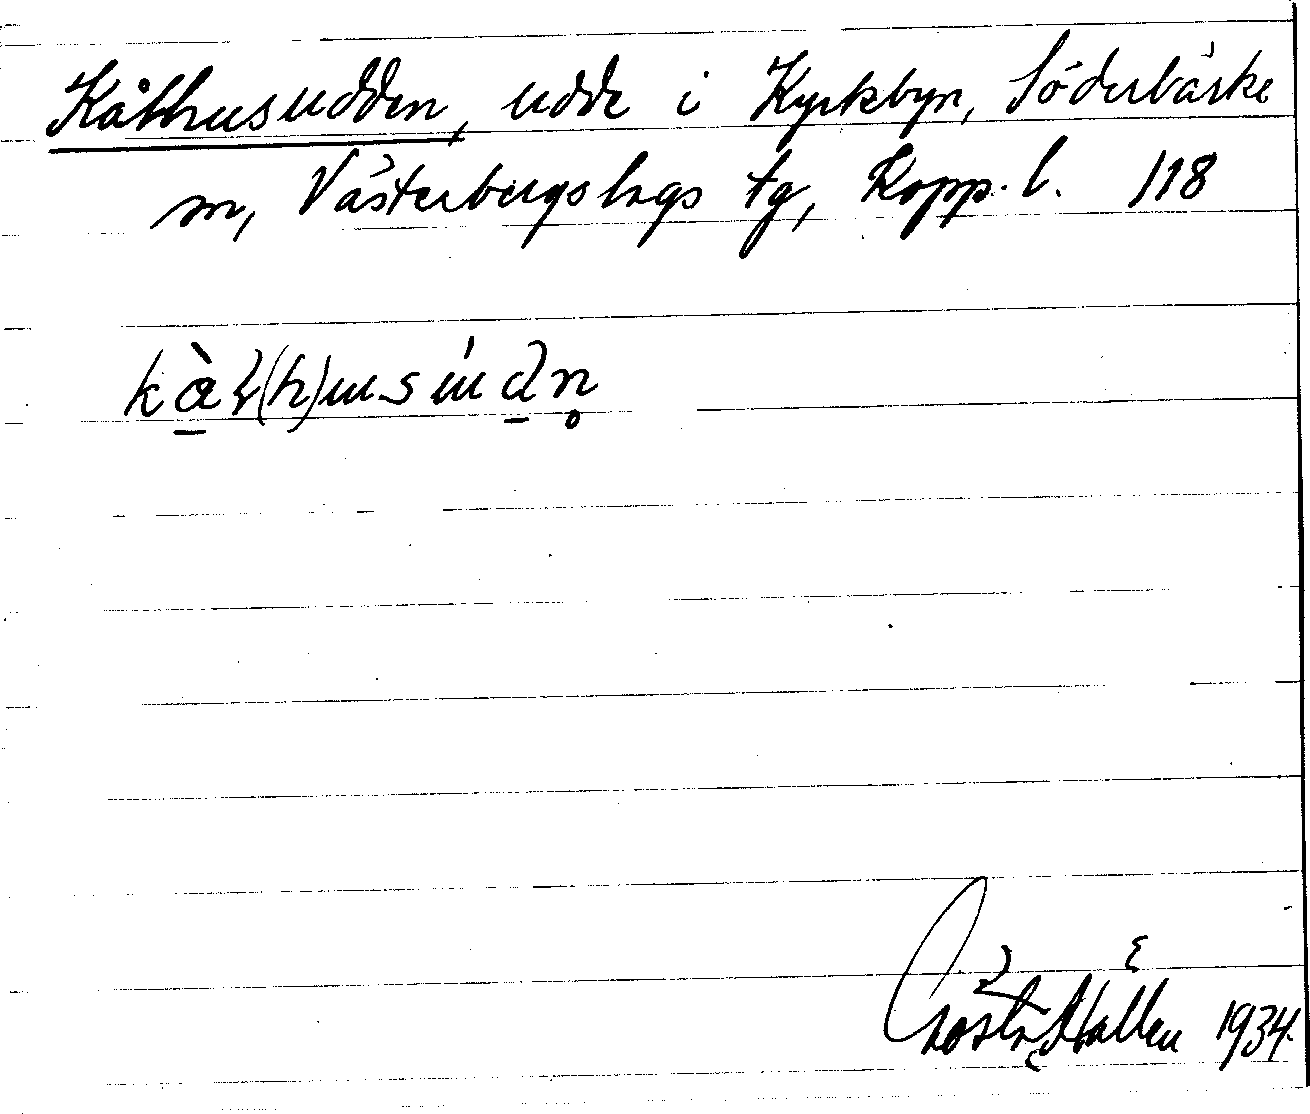 Kåthusudden, udde i Kyrkbyn, Söderbärke
sn, Västerbergslags tg, Kopp. l. 118
Gösta Hallén 1934.